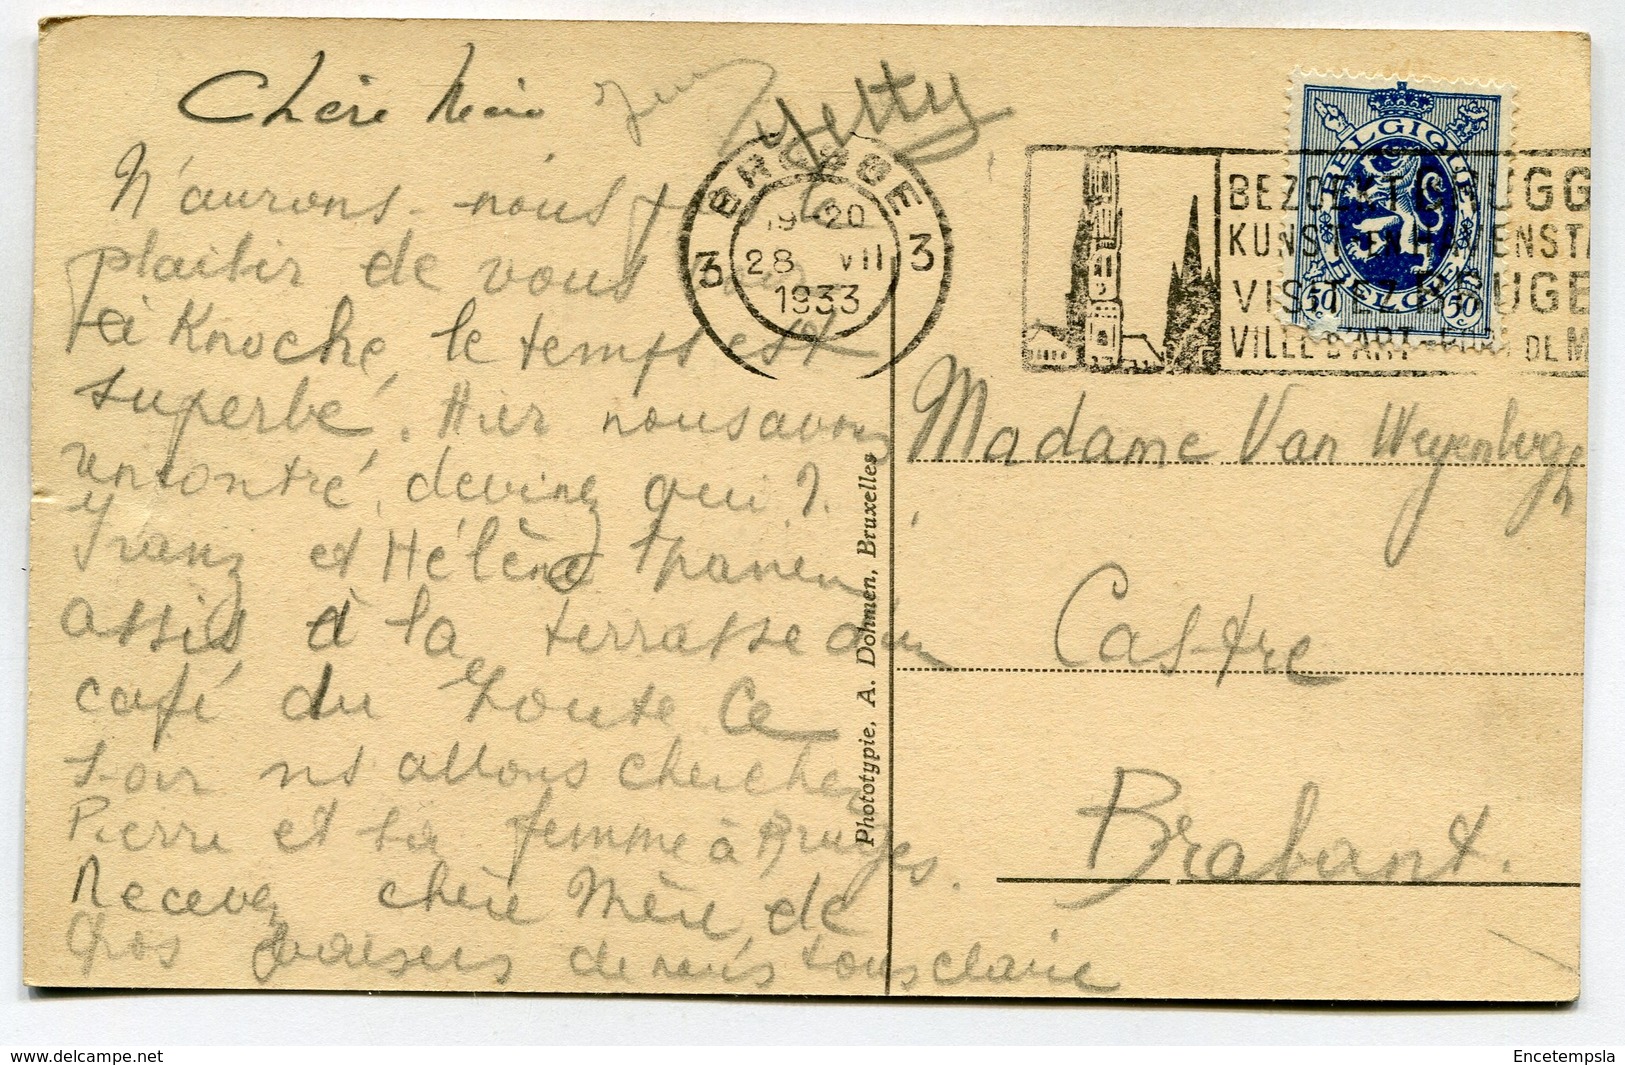 Chère Mère
Jetty
N'aurons-nous pas le
plaisir de vous
à Knocke, le temps est
superbe. Hier nous avons
rencontré, devinez qui ?
Franz et Hélène
assis à la terrasse d'un
café du Zoute Ce
soir ns allons chercher
Pierre et sa femme à Bruges.
Recevez chère Mère, de
Gros baisers de nous tous claire
BRUGGE
3 19-20 3
28 VII
1933
BEZOEKT BRUGG
KUNST EN HAVENSTA
VISITEZ BRUGE
VILLE D'ART DE M
BELGIQUE
BELGIË
50 c 50 c
Madame Van Weyenbergh
Castre
Brabant.
Phototypie, A. Dohmen, Bruxelles
www.delcampe.net
Encetempsla